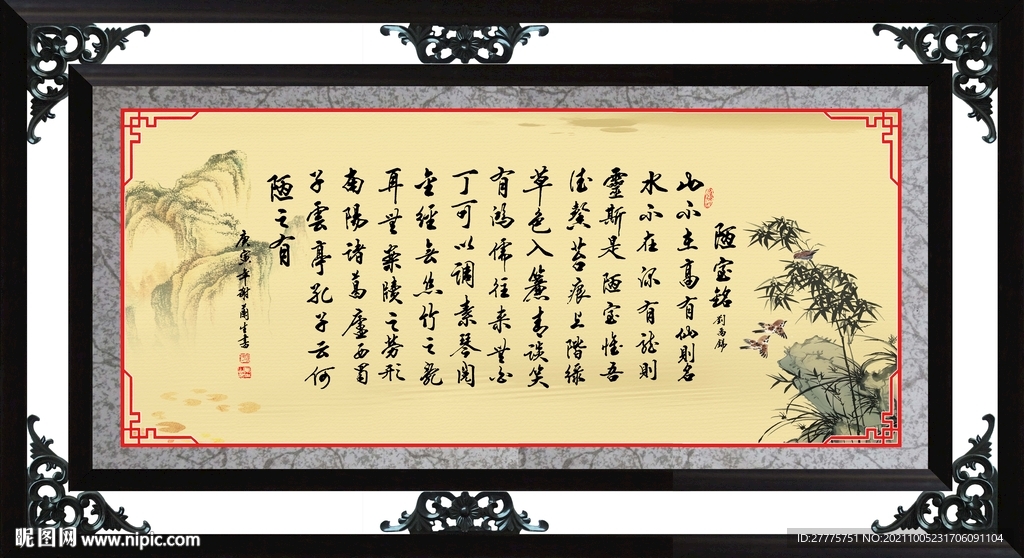 陋室铭
劉禹錫
山不在高有仙則名
水不在深有龍則
靈斯是陋室惟吾
德馨苔痕上階緑
草色入簾青談笑
有鴻儒往来無白
丁可以調素琴閱
金經無絲竹之亂
耳無案牘之勞形
南陽諸葛廬西蜀
子雲亭孔子云何
陋之有
庚寅年謝生書
昵图网 www.nipic.com
ID:27775751 NO:20211005231706091104